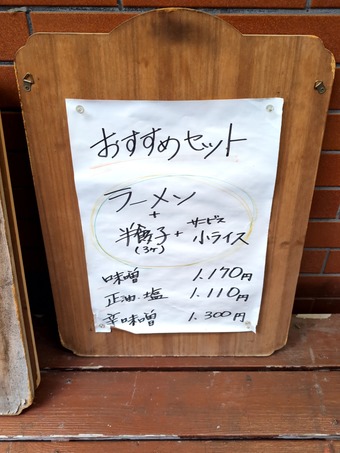 おすすめセット
ラーメン
+
半餃子 + サービス 小ライス
(3ヶ)
味噌 1.170円
正油・塩 1.110円
辛味噌 1.300円